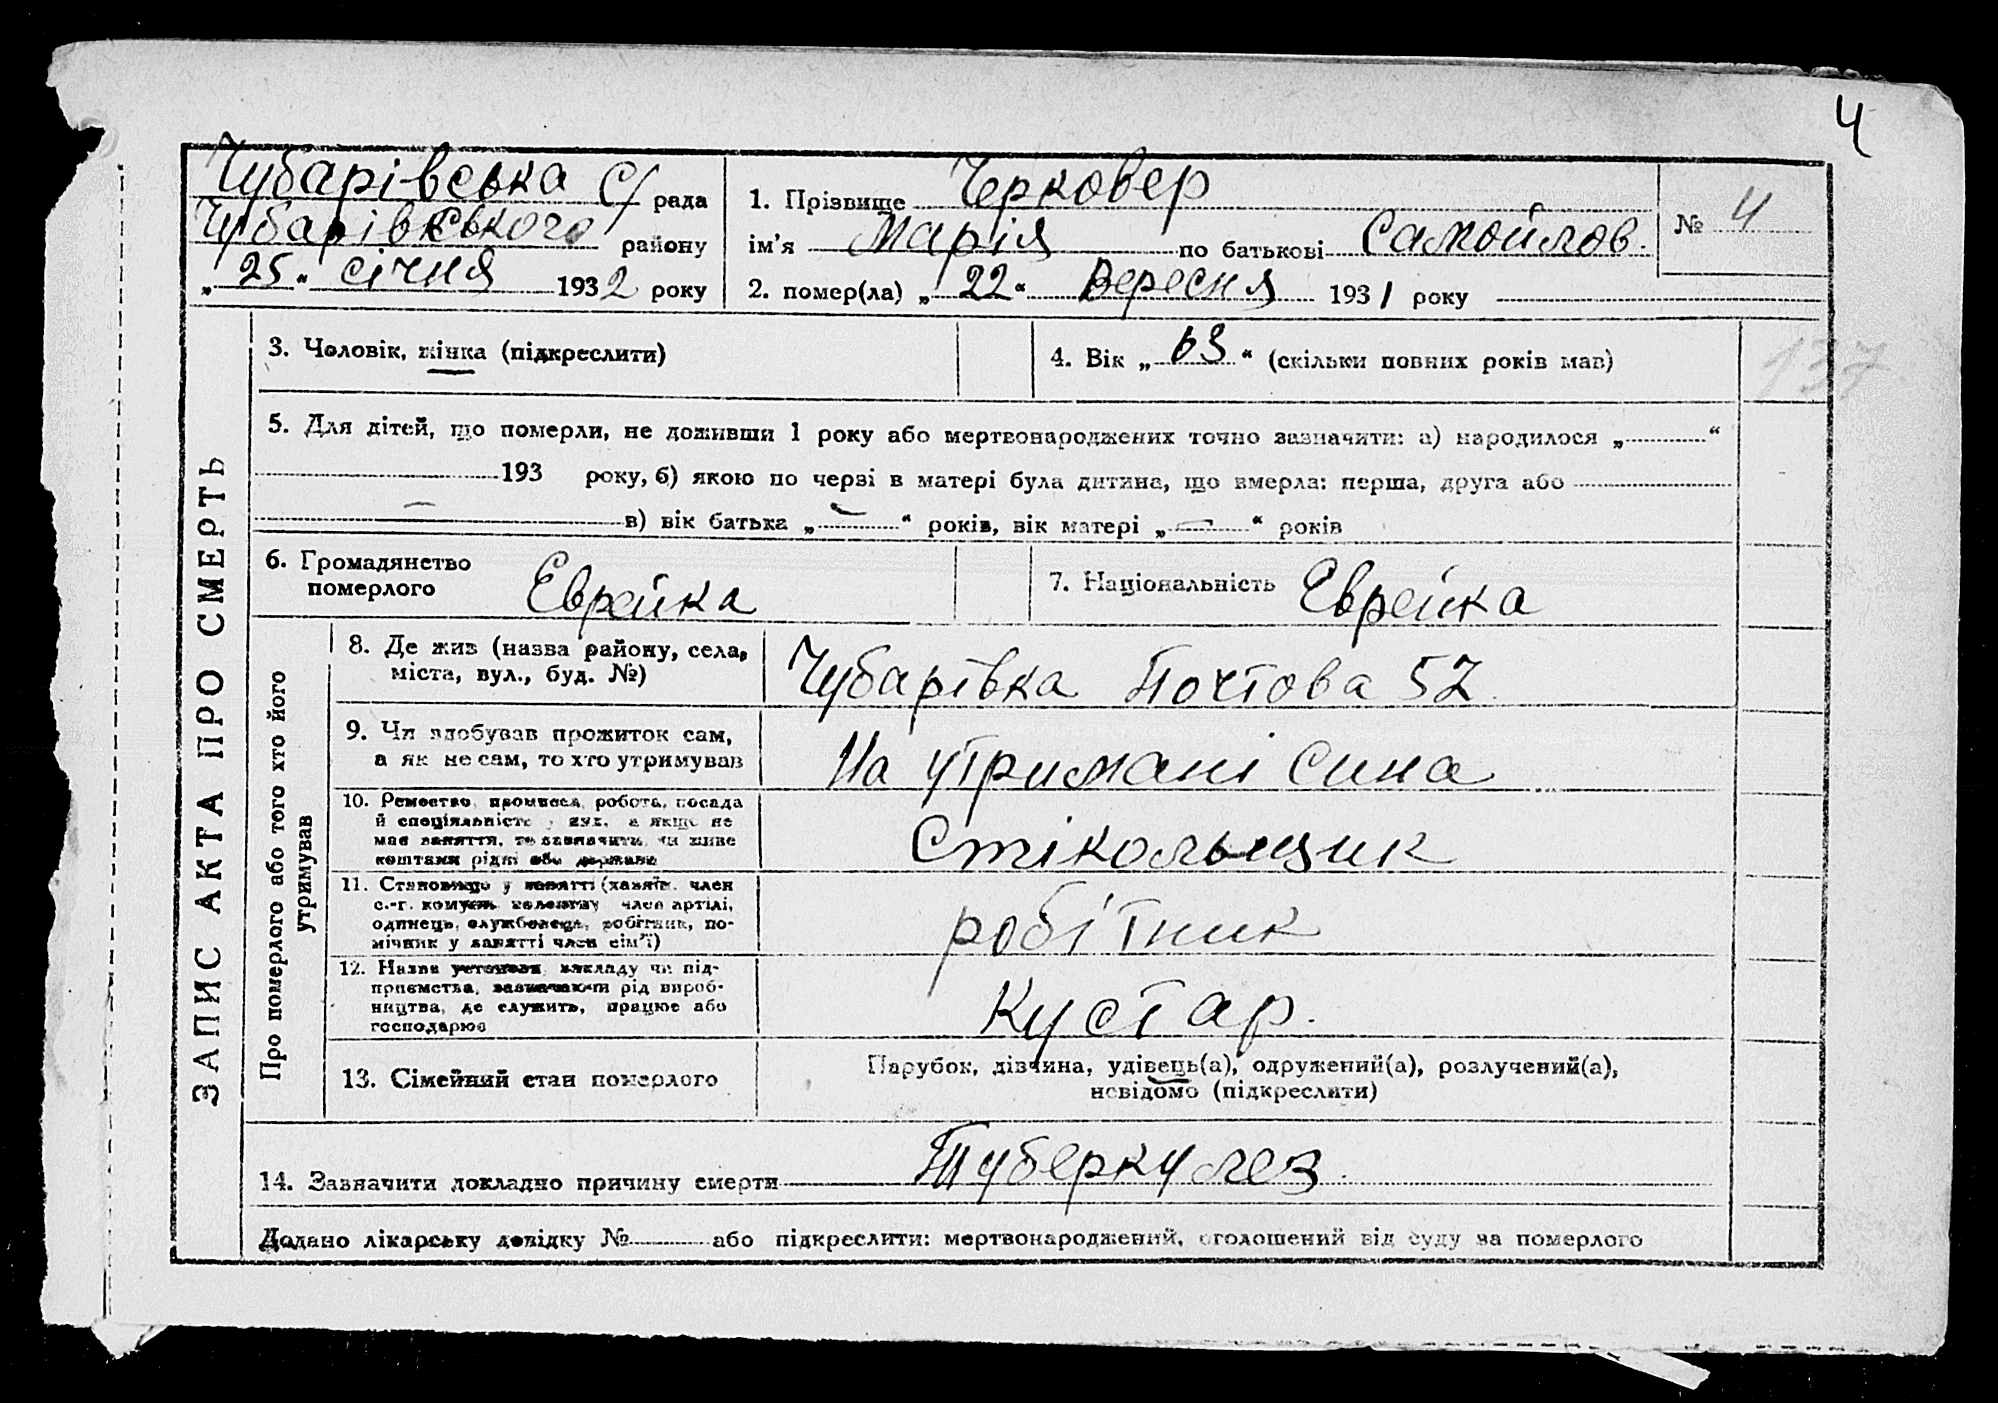 4
Чубарівська С/рада
Чубарівського району
„25“ січня 1932 року
1. Прізвище Черковер
ім’я Марія по батькові Самойлов.
№ 4
2. помер(ла) „22“ Вересня 1931 року
ЗАПИС АКТА ПРО СМЕРТЬ
3. Чоловік, жінка (підкреслити)
4. Вік „63“ (скільки повних років мав)
137
5. Для дітей, що померли, не доживши 1 року або мертвонароджених точно зазначити: а) народилося „ “
193 року, б) якою по черзі в матері була дитина, що вмерла: перша, друга або
— в) вік батька „—“ років, вік матері „—“ років
6. Громадянство
померлого Еврейка
7. Національність Еврейка
Про померлого або того хто його
утримував
8. Де жив (назва району, села,
міста, вул., буд. №)
Чубарівка Почтова 57
9. Чи здобував прожиток сам,
а як не сам, то хто утримував
На утримані сина
10. Ремество, промисел, робота, посада
й спеціяльність у них, а якщо не
має заняття, то зазначити, чи живе
коштами рідні або держави
Стікольщик
11. Становище у занятті (хазяїн, член
с.-г. комуни, колективу член артілі,
одинець, службовець, робітник, по-
мічник у занятті член сім’ї)
робітник
12. Назва установи, закладу чи під-
приємства, зазначаючи рід вироб-
ництва, де служить, працює або
господарює
Кустар.
13. Сімейний стан померлого
Парубок, дівчина, удівець(а), одружений(а), розлучений(а),
невідомо (підкреслити)
14. Зазначити докладно причину смерти Туберкулез.
Додано лікарську довідку № або підкреслити: мертвонароджений, оголошений від суду за померлого